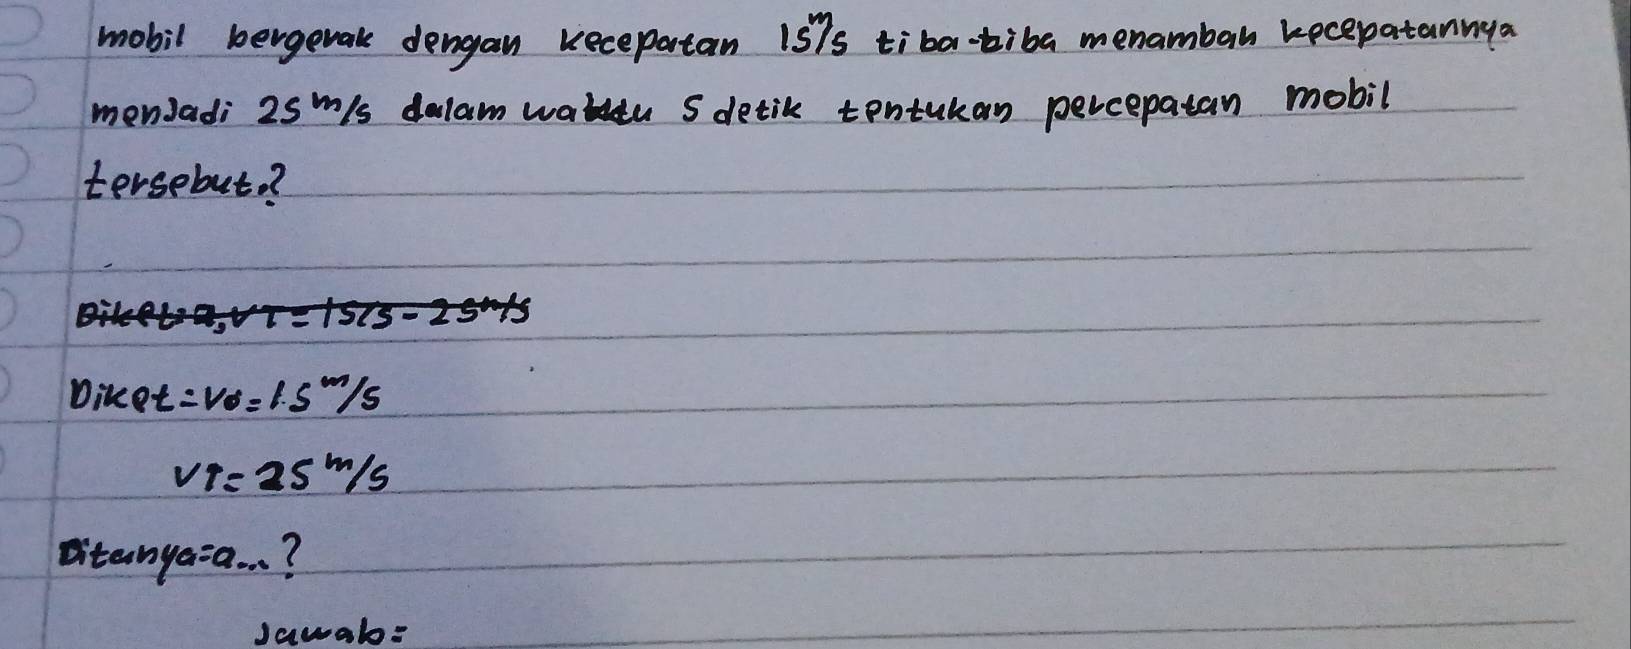 mobil bergerak dengan kecepatan 15 m/s tiba-tiba menambah kecepatannya
menJadi 25 m/s dalam waktu 5 detik tentukan percepatan mobil
tersebut.?
Diket = Vo = 15 m/s
VT = 25 m/s
Ditanya = a...?
Jawab =